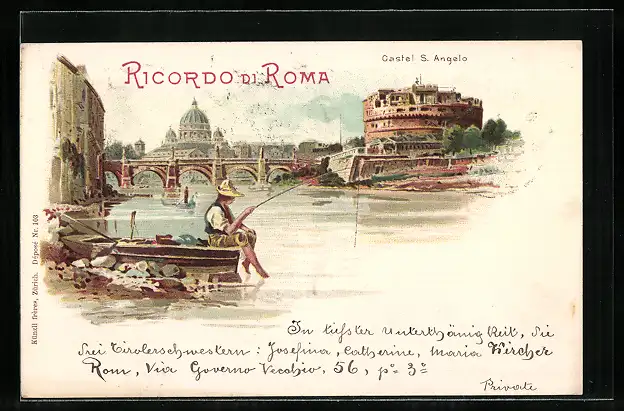 Castel S. Angelo
RICORDO DI ROMA
Künzli frères, Zürich. Déposé Nr. 103
In tiefster Unterthänigkeit, die
drei Tirolerschwestern: Josefina, Catherine, Maria Kircher
Rom, Via Governo Vecchio, 56, p° 3°
Private